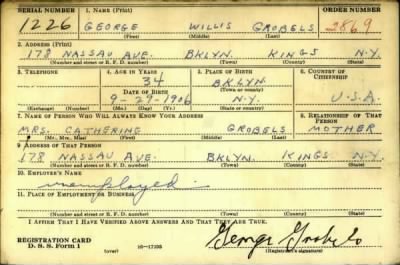 SERIAL NUMBER 1. NAME (Print) ORDER NUMBER
1226 GEORGE WILLIS GROBELS 2869
(First) (Middle) (Last)
2. ADDRESS (Print)
178 NASSAU AVE. BKLYN. KINGS N.Y.
(Number and street or R. F. D. number) (Town) (County) (State)
3. TELEPHONE 4. AGE IN YEARS 5. PLACE OF BIRTH 6. COUNTRY OF CITIZENSHIP
34 BKLYN.
DATE OF BIRTH (Town or county)
9-29-1906 N.Y. U.S.A.
(Exchange) (Number) (Mo.) (Day) (Yr.) (State or country)
7. NAME OF PERSON WHO WILL ALWAYS KNOW YOUR ADDRESS 8. RELATIONSHIP OF THAT PERSON
MRS. CATHERINE GROBELS MOTHER
(Mr., Mrs., Miss) (First) (Middle) (Last)
9. ADDRESS OF THAT PERSON
178 NASSAU AVE. BKLYN. KINGS N.Y.
(Number and street or R. F. D. number) (Town) (County) (State)
10. EMPLOYER'S NAME
unemployed
11. PLACE OF EMPLOYMENT OR BUSINESS
(Number and street or R. F. D. number) (Town) (County) (State)
I AFFIRM THAT I HAVE VERIFIED ABOVE ANSWERS AND THAT THEY ARE TRUE.
REGISTRATION CARD George Grobels
D. S. S. Form 1 (over) 16-17105 (Registrant's signature)